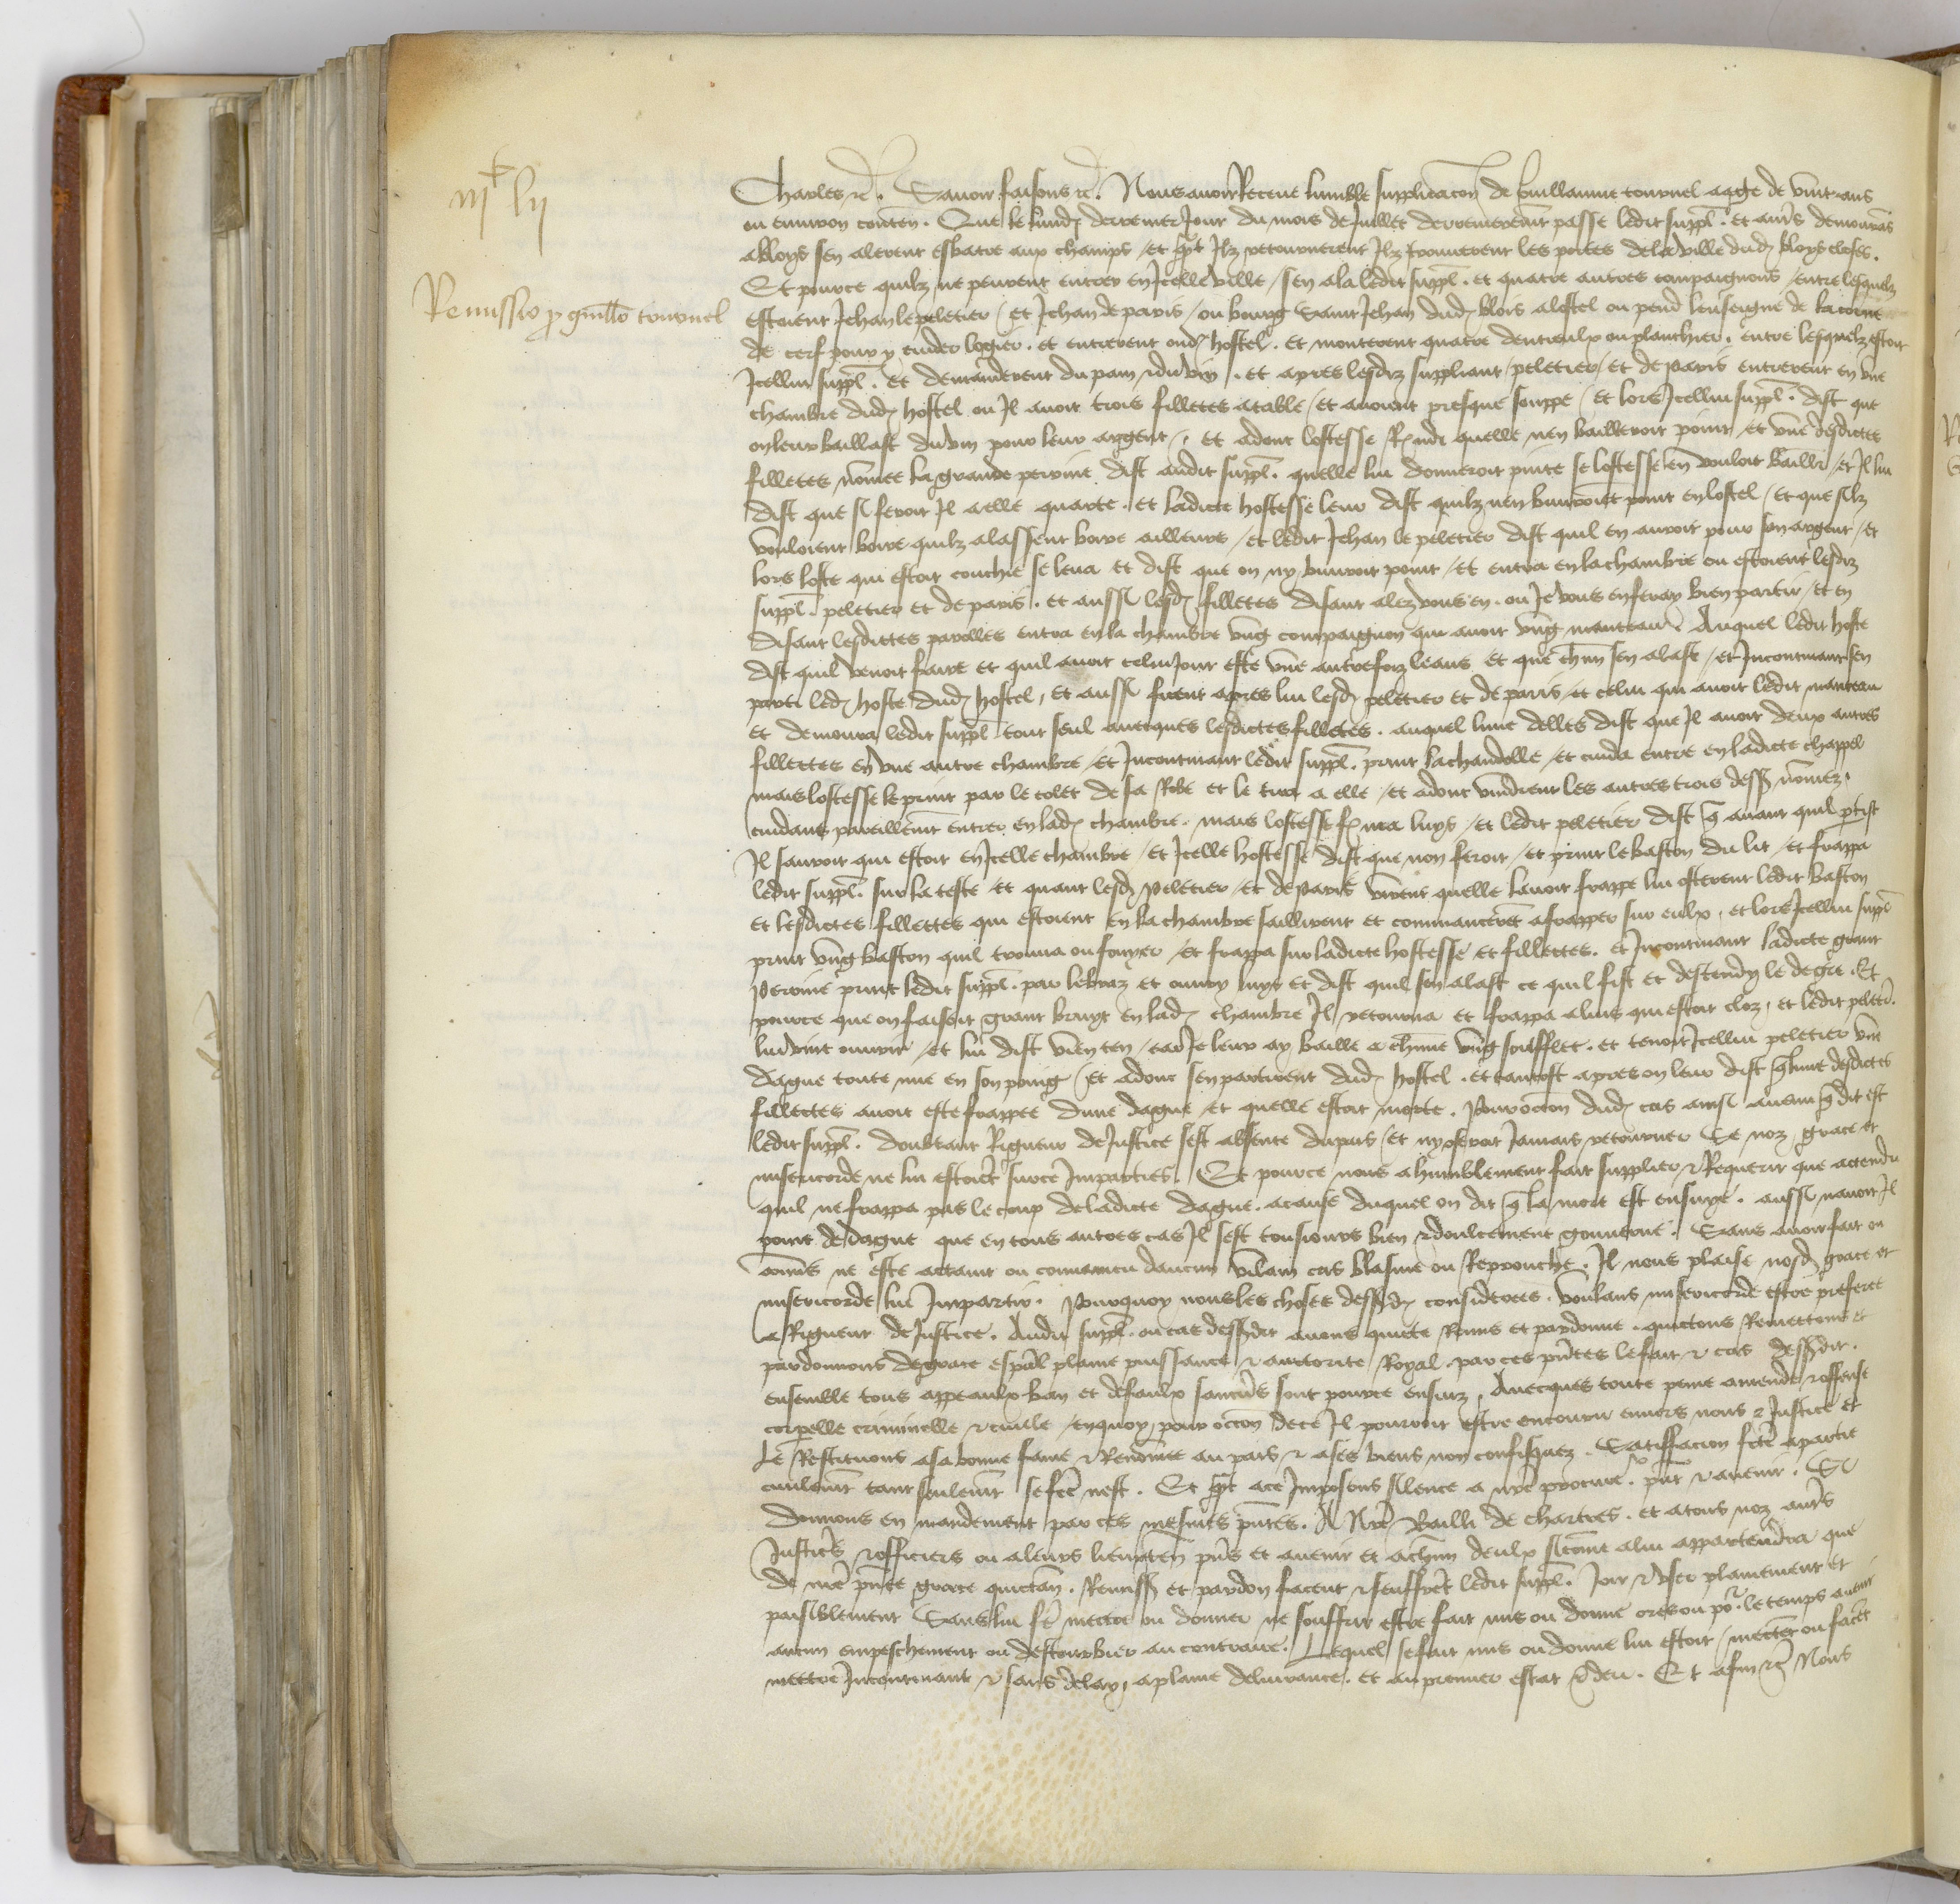 iijc lij
Remissio p guillo tournel
Charles etc. Savoir faisons etc. Nous avoir Receue lumble supplicacon de Guillaume tournel aage de vint ans
ou environ conten. Que le lundj derrenier Jour du mois de Juillet derrenierement passe ledit suppl. et autres demourans
a bloys sen alerent esbatre aux champs / et qnt Ilz retournerent Ilz trouverent les portes de la ville dud bloys closes.
Et pource quilz ne peurent entrer en Icelle ville / sen ala ledit suppl. et quatre autres compaignons / entre lesquelz
estoient Jehan le peletier / et Jehan de paris / ou bourg Saint Jehan dud blois a lostel ou pend lenseigne de la corne
de cerf pour y cuider logier. et entrerent oud hostel. et monterent quatre dentreulx ou planchier. entre lesquelz estoit
Icellui suppl. et demanderent du pain et du vin. et apres lesdiz suppliant / peletier / et de paris entrerent en une
chambre dud hostel ou Il avoit trois filletes a table / et avoient presque souppe / Et lors Icellui suppl. dist que
on leur baillast du vin pour leur argent / et adonc lostesse Rndi quelle nen bailleroit point / et une desdictes
filletes nomee la grande perrine dist audit suppl. quelle lui donneroit pinte se lostesse en vouloit bailler / et Il lui
dist que si feroit Il a elle quarte. et ladicte hostesse leur dist quilz nen buvroient point en lostel / et que silz
vouloient boire quilz alassent boire ailleurs / et ledit Jehan le peletier dist quil en auroit pour son argent / et
lors loste qui estoit couchie se leva et dist que on ny buvroit point / et entra en la chambre ou estoient lesdiz
suppl. peletier et de paris. et aussi lesd filletes disant alez vous en. ou Je vous en feray bien partir / et en
disant lesdittes parolles entra en la chambre ung compaignon qui avoit ung manteau / Auquel ledit hoste
dist quil venoit faire et quil avoit celui Jour este une autreffoiz leans et que chun sen alast / et Incontinant sen
parti led hoste dud hostel, et aussi firent apres lui lesd peletier et de paris / et celui qui avoit ledit manteau
et demoura ledit suppl tout seul avecques lesdictes filletes. auquel lune delles dist que Il avoit deux autres
fillettes en une autre chambre / et Incontinant ledit suppl. print la chandelle / et cuida entre en ladicte chappel
mais lostesse le print par le colet de sa Robe et le tira a elle / et adonc vindrent les autres trois dess nomez.
cuidans pareillement entrer en lad chambre. mais lostesse frma luys / et ledit peletier dist q avant quil ptist
Il sauroit qui estoit en Icelle chambre / et Icelle hostesse dist que non feroit / et print le baston du lit / et frappa
ledit suppl. sur la teste / et quant lesd peletier / et de paris virent quelle lavoit frappe lui osterent ledit baston
et lesdictes fillettes qui estoient en la chambre saillirent et commancerent a frapper sur eulx, et lors Icellui suppl
print ung baston quil trouva ou fouyer / et frappa sur ladicte hostesse et fillettes. et Incontinant ladicte grant
perrine print ledit suppl. par le braz et ouvry luys et dist quil sen alast ce quil fist et descendy le degre. Et
pource que on faisoit grant bruyt en lad chambre Il retourna et frappa a luis qui estoit cloz, et ledit peletier.
lui vint ouvrir / et lui dist vien ten / car Je leur ay baille a chune ung soufflet. et tenoit Icellui peletier une
dague toute nue en son poing / et adonc sen partirent dud hostel. et tantost apres on leur dist q lune desdictes
fillettes avoit este frappee dune dague / et quelle estoit morte. Pour occon dud cas ainsi avenu q dit est
ledit suppl. doubtant Rigueur de Justice sest absente du pais / et ny oseroit Jamais retourner Se noz grace et
misericorde ne lui estoient sur ce Imparties. Et pource nous a humblement fait supplier et Requerir que attendu
quil ne frappa pas le coup de ladicte dague. a cause duquel on dit q la mort est ensuye. aussi navoit Il
point de dague que en tous autres cas Il sest tousiours bien et doulcement gouverne. Sans avoir fait ou
comis ne este attaint ou convaincu daucun vilain cas blasme ou Reprouche. Il nous plaise nosd grace et
misericorde lui Impartir. Pourquoy nous les choses dessusd considerees. voulans misericorde estre preferee
a Rigueur de Justice. Audit suppl. ou cas dessusdit avons quicte Remis et pardonne. quictons Remettons et
pardonnons de grace espal plaine puissance et auctorite Royal. par ces pntes le fait et cas dessusdit.
ensemble tous appeaulx ban et defaulx saucuns sont pource ensuiz, Avecques toute peine amende et offense
corpelle criminelle et civile / en quoy pour occon de ce Il pourroit estre encouru envers nous et Justice et
Le Restituons a sa bonne fame et Renomee au pais et a ses biens non confisquez. Satiffacion fcte a partie
civilement tant seulement se fcte nest. Et qnt a ce Imposons silence a nre procureur. pnt et avenir. Si
donnons en mandement par ces mesmes pntes. A Nre Bailli de chartres. et a tous noz autrs
Justicrs et officiers ou a leurs lieuxten pns et avenir et a chun deulx sicomme a lui appartendra que
de nre pnte grace quictan. Remiss et pardon facent et seuffrent ledit suppl. Joir et user plainement et
paisiblement Sans lui fe mectre ou donner ne souffrir estre fait mis ou donne ores ou pour le temps avenir
aucun empeschement ou destourbier au contraire. Lequel se fait mis ou donne lui estoit / mectent ou facent
mettre Incontinant et sans delay, a plaine delivrance. et au premier estat et deu. Et afin etc Nous